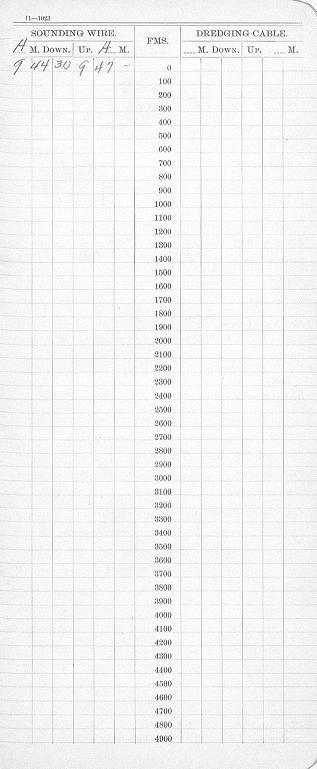 11—1023
SOUNDING WIRE. FMS. DREDGING CABLE.
A M. DOWN. UP. A M. M. DOWN. UP. M.
9 44 30 9 47 – 0
100
200
300
400
500
600
700
800
900
1000
1100
1200
1300
1400
1500
1600
1700
1800
1900
2000
2100
2200
2300
2400
2500
2600
2700
2800
2900
3000
3100
3200
3300
3400
3500
3600
3700
3800
3900
4000
4100
4200
4300
4400
4500
4600
4700
4800
4900